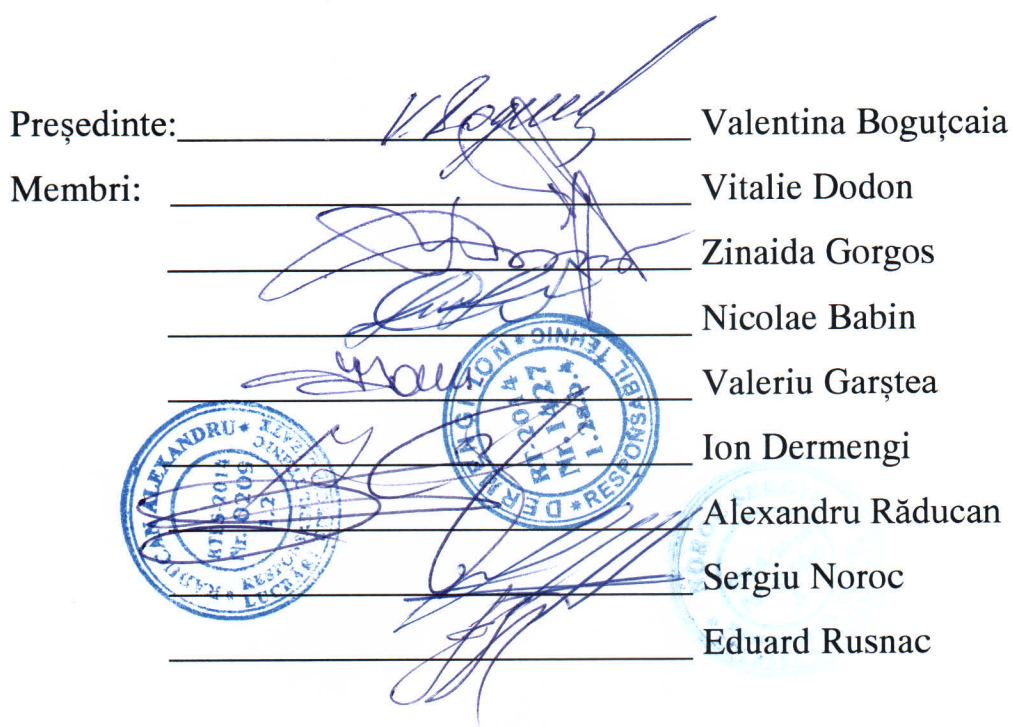 Președinte: V. Boguț Valentina Boguțcaia
Membri: Vitalie Dodon
Zinaida Gorgos
Nicolae Babin
Valeriu Garștea
Ion Dermengi
Alexandru Răducan
Sergiu Noroc
Eduard Rusnac
DERMENGI ION * RESPONSABIL TEHNIC *
RT-2014
Nr. 1427
RĂDUCAN ALEXANDRU *
2014
Nr. 0209